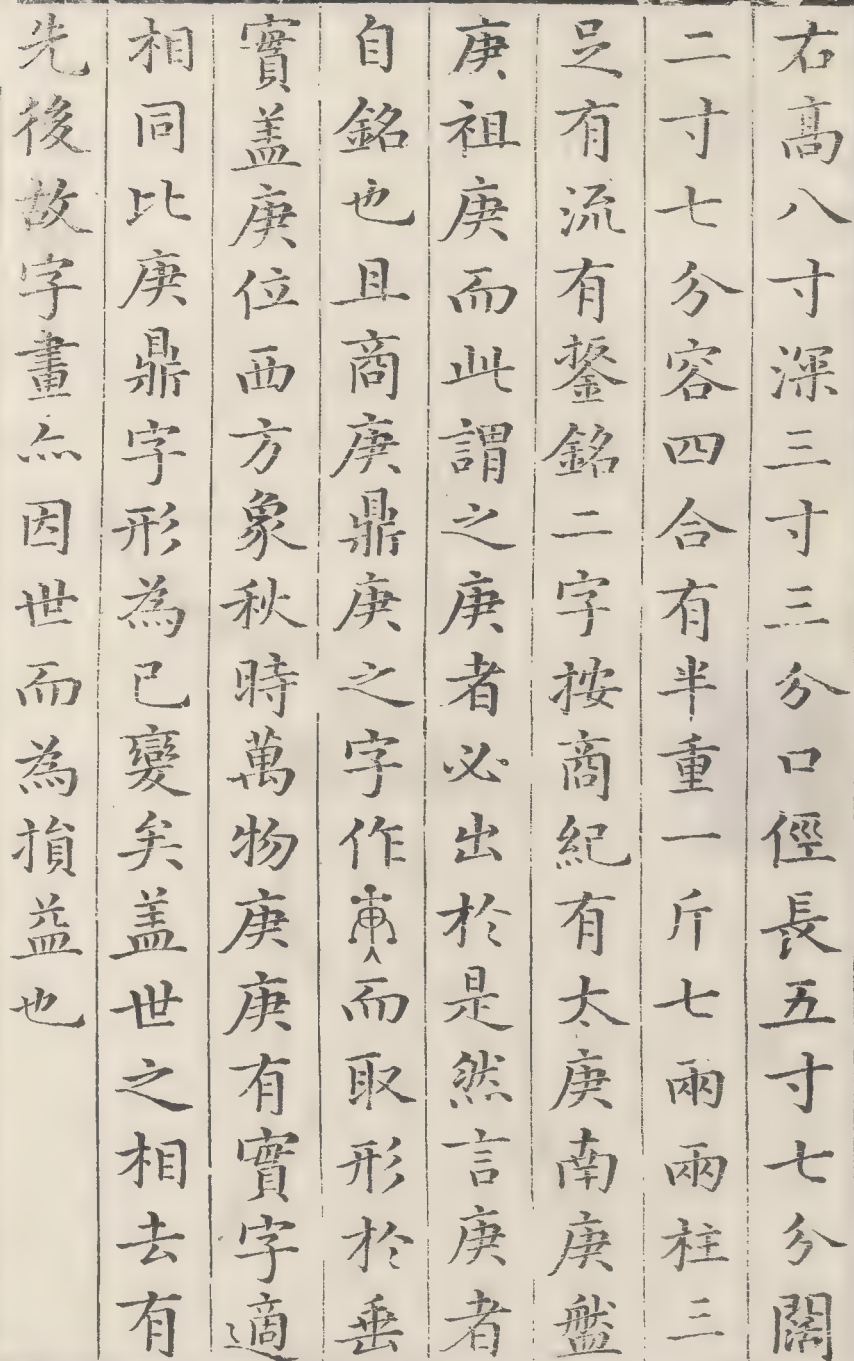 右髙八寸深三寸三分口徑長五寸七分闊
二寸七分容四合有半重一斤七兩兩柱三
足有流有鋬銘二字按商紀有太庚南庚盤
庚祖庚而此謂之庚者必出於是然言庚者
自銘也且商庚鼎庚之字作而取形於垂
實盖庚位西方象秋時萬物庚庚有實字適
相同比庚鼎字形為已變矣盖世之相去有
先後故字畫亦因世而為損益也